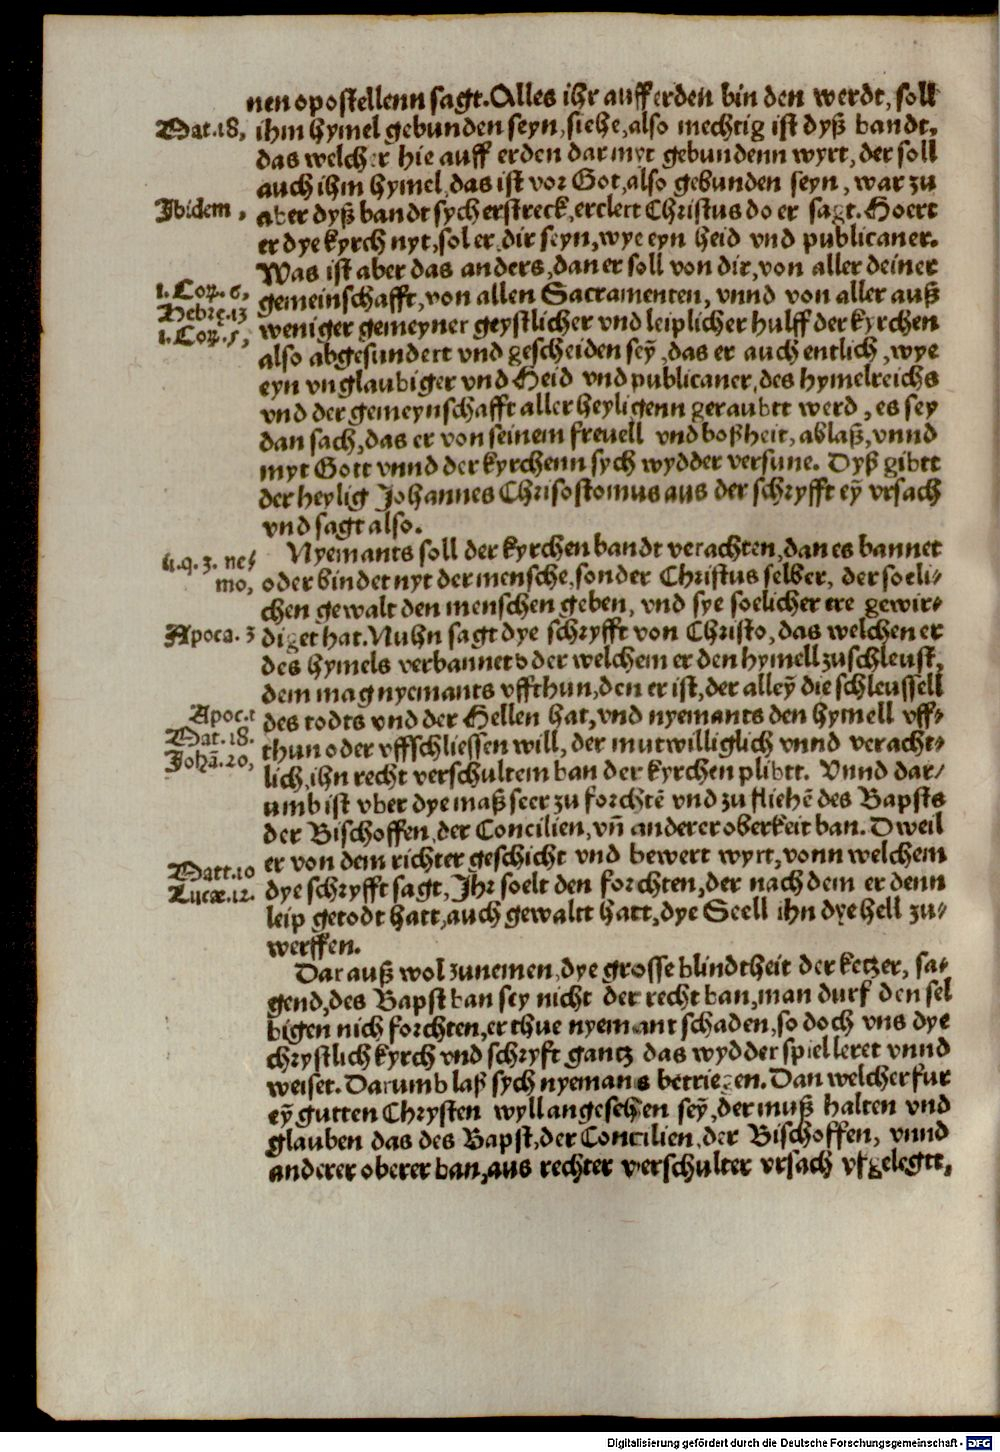 nen opostellenn sagt. Alles ihr auff erden bin den werdt, soll
Mat.18, ihm hymel gebunden seyn, siehe, also mechtig ist dyß bandt,
das welcher hie auff erden dar myt gebundenn wyrt, der soll
auch ihm hymel, das ist vor Got, also gebunden seyn, war zu
Ibidem, aber dyß bandt sych erstreck, erclert Christus do er sagt. Hoert
er dye kyrch nyt, sol er dir seyn, wye eyn heid vnd publicaner.
Was ist aber das anders, dan er soll von dir, von aller deiner
1. Cor. 6, gemeinschafft, von allen Sacramenten, vnnd von aller auß
Hebre.13
1. Cor. 5, weniger gemeyner geystlicher vnd leiplicher hulff der kyrchen
also abgesundert vnd gescheiden sey̅, das er auch entlich, wye
eyn vnglaubiger vnd Heid vnd publicaner, des hymelreichs
vnd der gemeynschafft aller heyligenn geraubtt werd, es sey
dan sach, das er von seinem freuell vnd boßheit, ablaß, vnnd
myt Gott vnnd der kyrchenn sych wydder versune. Dyß gibtt
der heylig Johannes Chrisostomus aus der schryfft ey̅ vrsach
vnd sagt also.
ii.q.3. ne⸗ Nyemants soll der kyrchen bandt verachten, dan es bannet
mo, oder bindet nyt der mensche, sonder Christus selber, der soeli⸗
chen gewalt den menschen geben, vnd sye soelicher ere gewir⸗
Apoca. 3 diget hat. Nuhn sagt dye schryfft von Christo, das welchen er
des hymels verbannet oder welchem er den hymell zuschleust,
dem mag nyemants vffthun, den er ist, der alley̅ die schleussell
Apoc.1 des todts vnd der Hellen hat, vnd nyemants den hymell vff⸗
Mat. 18. thun oder vffschliessen will, der mutwilliglich vnnd veracht⸗
Johā. 20, lich, ihn recht verschultem ban der kyrchen plibtt. Vnnd dar⸗
umb ist vber dye maß seer zu forchtē vnd zu fliehē des Bapsts
der Bischoffen, der Concilien, vn̄ anderer oberkeit ban. Dweil
er von dem richter geschicht vnd bewert wyrt, vonn welchem
Matt.10
Lucæ.12. dye schryfft sagt, Ihr soelt den forchten, der nach dem er denn
leip getodt hatt, auch gewaltt hatt, dye Seell ihn dye hell zu⸗
werffen.
Dar auß wol zunemen, dye grosse blindtheit der ketzer, sa⸗
gend, des Bapst ban sey nicht der recht ban, man durf den sel
bigen nich forchten, er thue nyemant schaden, so doch vns dye
chrystlich kyrch vnd schryft gantz das wydder spiel leret vnnd
weiset. Darumb laß sych nyemans betriegen. Dan welcher fur
ey̅ gutten Chrysten wyll angesehen sey̅, der muß halten vnd
glauben das des Bapst, der Concilien, der Bischoffen, vnnd
anderer oberer ban, aus rechter verschulter vrsach vfgelegtt,
Digitalisierung gefördert durch die Deutsche Forschungsgemeinschaft - DFG